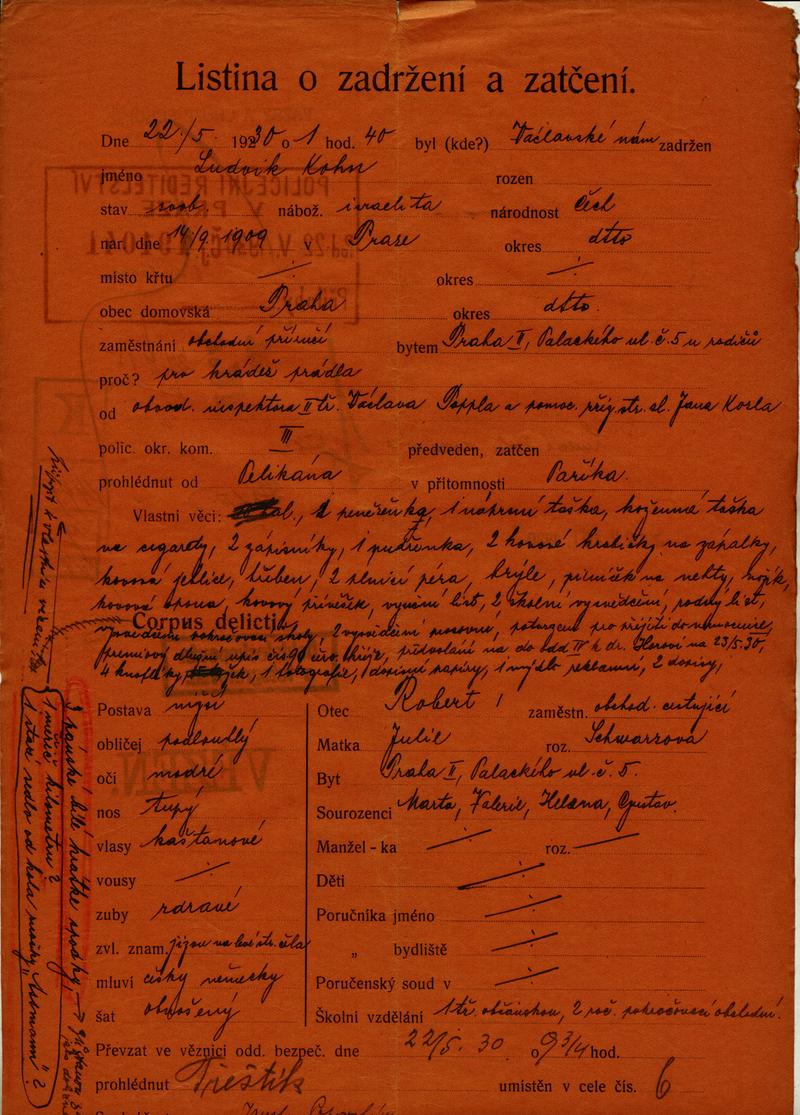 Listina o zadržení a zatčení.
Dne 22/5. 1930 o 1 hod. 40 byl (kde?) Václavské nám zadržen
jméno Ludvík Kohn rozen
stav svob. nábož. israelita národnost Čech
nar. dne 14/9. 1909 v Praze okres dtto
místo křtu ./. okres ./.
obec domovská Praha okres dtto.
zaměstnání obchodní příručí bytem Praha II, Palackého ul. č. 5 u rodičů
proč? pro krádež prádla
od obvod. inspektora II tř. Václava Poppla a pomoc. příg. str. sl. Jana Korla
polic. okr. kom. III předveden, zatčen
prohlédnut od Pelikána v přítomnosti Paříka.
Vlastní věci: 1 peněženka, 1 náprsní taška, kožená taška
na cigarety, 2 zápisníky, 1 pudřenka, 2 kovové krabičky na zápalky,
kovová jehlice, hřeben, 2 plnicí péra, brýle, pilníček na nehty, nožík,
kovová spona, kovový přívěsek, výuční list, 2 školní vysvědčení, rodný list,
Corpus delicti:
vysvědčení pokračovací školy, 2 vysvědčení pracovní, potvrzení pro přijetí do nemocnice,
předvolání na do odd IV k dr. Horovi na 23/5.30,
4 knoflíky, 1 fotografie, 1 dopisní papíry, 1 mýdlo reklamní, 2 dopisy,
Postava nižší
obličej podlouhlý
oči modré
nos tupý
vlasy kaštanové
vousy ./.
zuby zdravé
zvl. znam. jizva na levé str. čela
mluví česky německy
šat obnošený
Otec Robert zaměstn. obchod. cestující
Matka Julie roz. Schwarzova
Byt Praha II, Palackého ul. č. 5.
Sourozenci Marta, Valerie, Helena, Gustav.
Manžel - ka ./. roz.
Děti ./.
Poručníka jméno ./.
„ bydliště ./.
Poručenský soud v ./.
Školní vzdělání 1 tř. občanskou, 2 roč. pokračovací obchodní.
Převzat ve věznici odd. bezpeč. dne 22/5. 30 o 9 3/4 hod.
prohlédnut Treštík umístěn v cele čís. 6
3 pánské bílé krátké spodky,
1 měřič kilometru ?
1 staré sedlo od kola
POLICEJNÍ ŘEDITELSTVÍ
V PRAZE
22. V.
VĚZEŇ.